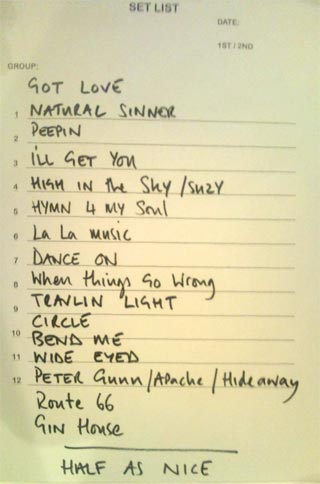 SET LIST
DATE:
1ST / 2ND
GROUP:
GOT LOVE
1 NATURAL SINNER
2 PEEPIN
3 I'LL GET YOU
4 HIGH IN the Sky / SUZY
5 HYMN 4 MY Soul
6 La La music
7 DANCE ON
8 When things Go Wrong
9 TRAVLIN LIGHT
CIRCLE
10 BEND ME
11 WIDE EYED
12 PETER Gunn / Apache / Hideaway
Route 66
GIN House
HALF AS NICE